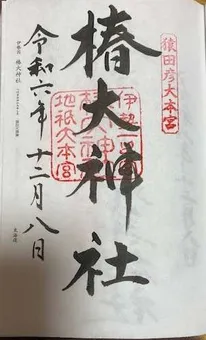 猿田彦大本宮
椿大神社
伊勢一宮
地祇大本宮
令和六年十二月八日